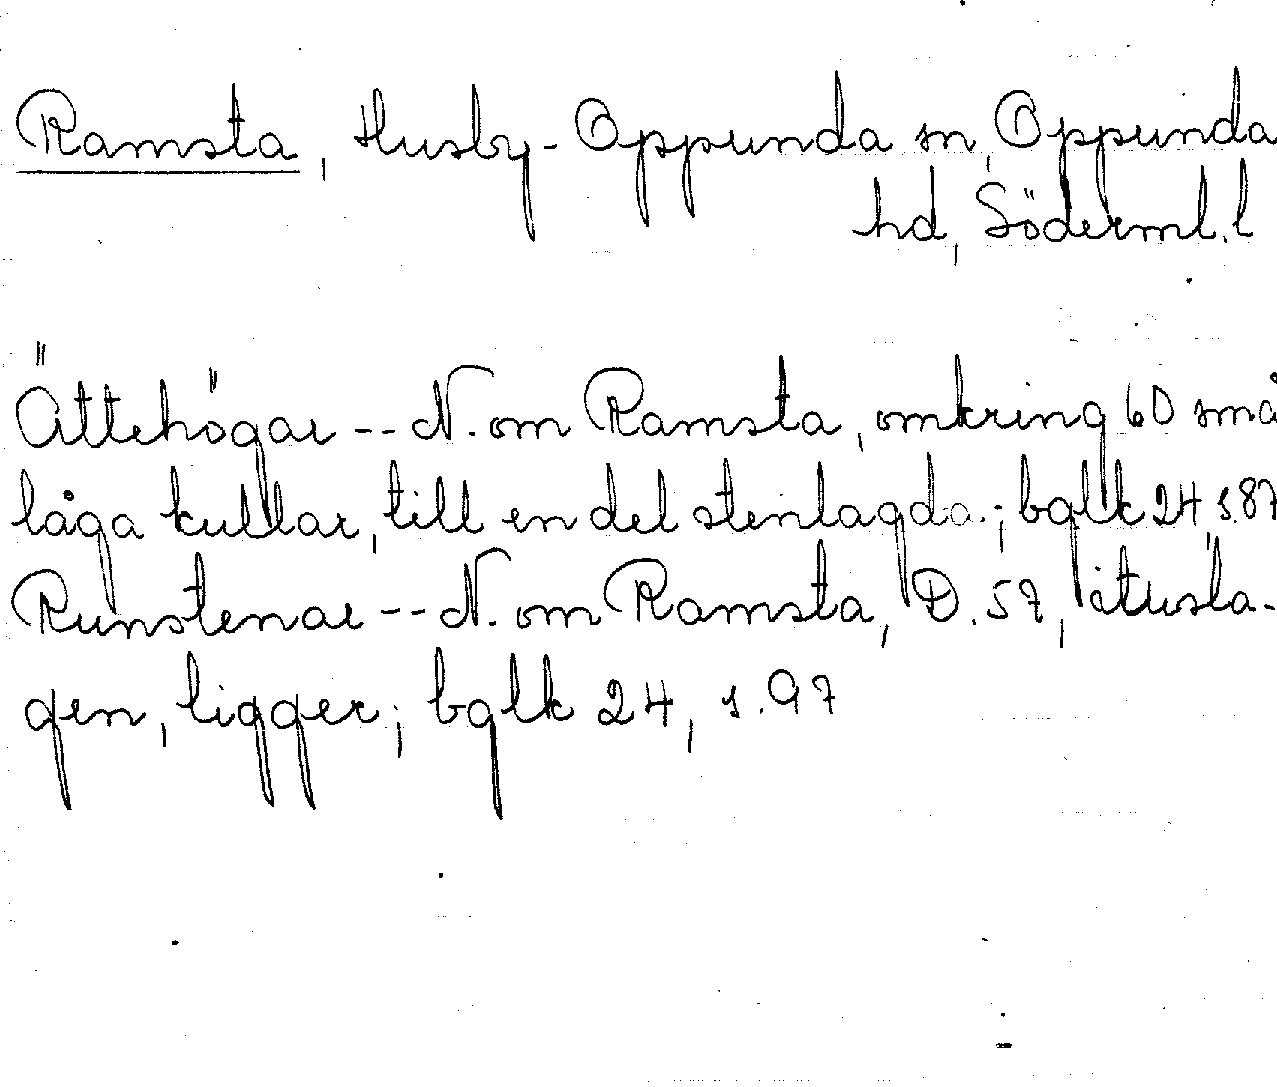 Ramsta, Husby-Oppunda sn, Oppunda
hd, Söderml. l
Ättehögar -- N. om Ramsta, omkring 60 små
låga kullar, till en del stenlagda.; bglk 24 s.87
Runstenar -- N. om Ramsta, D. 57, itusla-
gen, ligger; bglk 24, s. 97